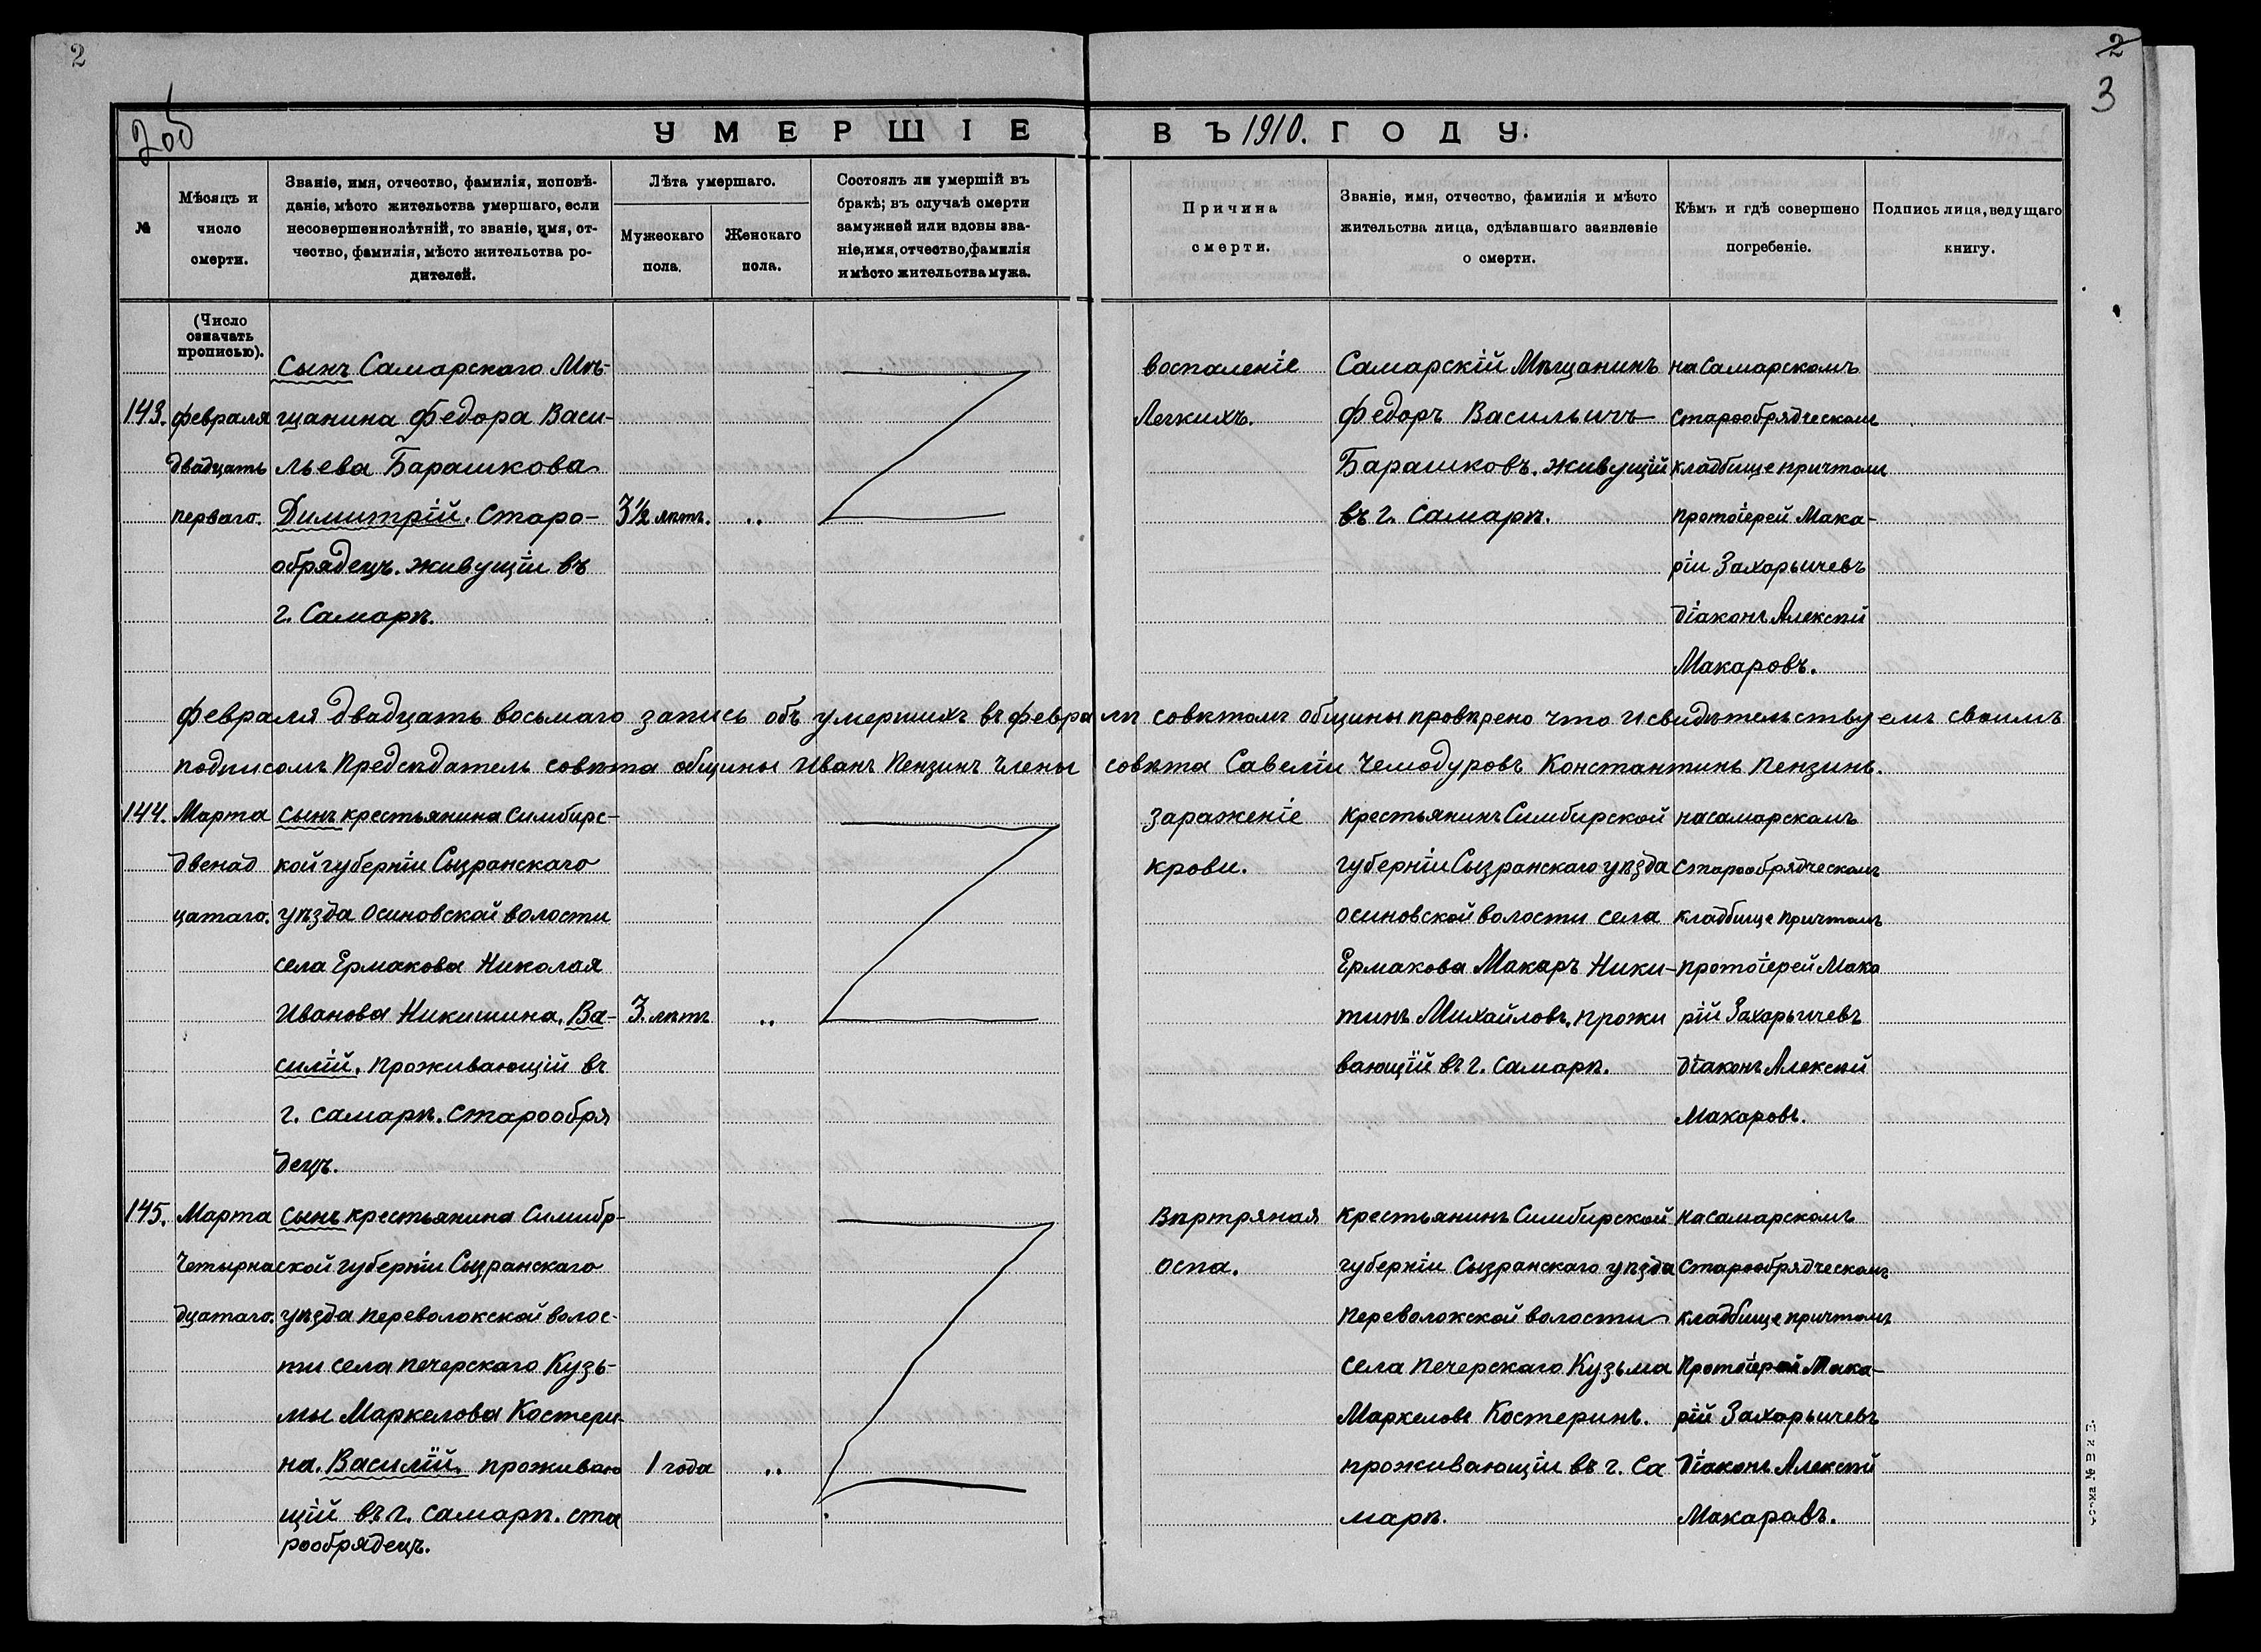 2
2
3
2об
УМЕРШІЕ ВЪ 1910. ГОДУ.
№
Мѣсяцъ и число смерти.
Званіе, имя, отчество, фамилія, исповѣ-
даніе, мѣсто жительства умершаго, если
несовершеннолѣтній, то званіе, имя, от-
чество, фамилія, мѣсто жительства ро-
дителей.
Лѣта умершаго.
Мужескаго пола.
Женскаго пола.
Состоялъ ли умершій въ
бракѣ; въ случаѣ смерти
замужней или вдовы зва-
ніе, имя, отчество, фамилія
и мѣсто жительства мужа.
Причина смерти.
Званіе, имя, отчество, фамилія и мѣсто
жительства лица, сдѣлавшаго заявленіе
о смерти.
Кѣмъ и гдѣ совершено
погребеніе.
Подпись лица, ведущаго
книгу.
(Число
означать
прописью).
143.
февраля
двадцать
перваго.
Сынъ Самарскаго Мѣ-
щанина Федора Васи-
льева Барашкова
Димитрій. Старо-
обрядецъ. живущіи въ
г. Самарѣ.
3½ лѣтъ.
..
воспаленіе
Легкихъ.
Самарскій Мѣщанинъ
Федоръ Васильичъ
Барашковъ. живущій
въ г. Самарѣ.
на Самарскомъ
старообрядческомъ
кладбище причтомъ
протоіерей Мака-
ріи Захарьичевъ
діаконъ Алексѣй
Макаровъ.
февраля двадцать восьмаго запись объ умершихъ въ февралѣ совѣтомъ общины провѣрено что и свидѣтельствуемъ своимъ
подписомъ Предсѣдатель совѣта общины Иванъ Пензинъ Члены совѣта Савеліи Чемодуровъ Константинъ Пензинъ.
144.
Марта
двенад
цатаго.
Сынъ крестьянина Симбирс-
кой губерніи Сызранскаго
уѣзда Осиновской волости
села Ермакова Николая
Иванова Никишина. Ва-
силій. Проживающій въ
г. Самарѣ. Старообря
децъ.
3. лѣтъ
..
Зараженіе
крови.
Крестьянинъ Симбирской
губерніи Сызранскаго уѣзда
Осиновской волости села
Ермакова Макаръ Ники-
тинъ Михайловъ. прожи
вающій въ г. Самарѣ.
на самарскомъ
старообрядческомъ
кладбище причтомъ
протоіерей Мака
рій Захарьичевъ
діаконъ Алексѣй
Макаровъ.
145.
Марта
Четырна
дцатаго.
Сынъ крестьянина Симибр-
ской губерніи Сызранскаго
уѣзда Переволокской волос-
ти села печерскаго Кузь-
мы Маркелова Костери-
на. Василій. проживаю
щій въ г. Самарѣ. ста
рообрядецъ.
1 года
..
Вѣртряная
оспа.
Крестьянинъ Симбирской
губерніи Сызранскаго уѣзда
Переволокской волости
села Печерскаго Кузьма
Маркеловъ Костеринъ.
проживающіи въ г. Са
марѣ.
на самарскомъ
Старообрядческомъ
кладбище причтомъ
Протоіерей Мака-
рій Захарьичевъ
Діаконъ Алексѣй
Макаравъ.